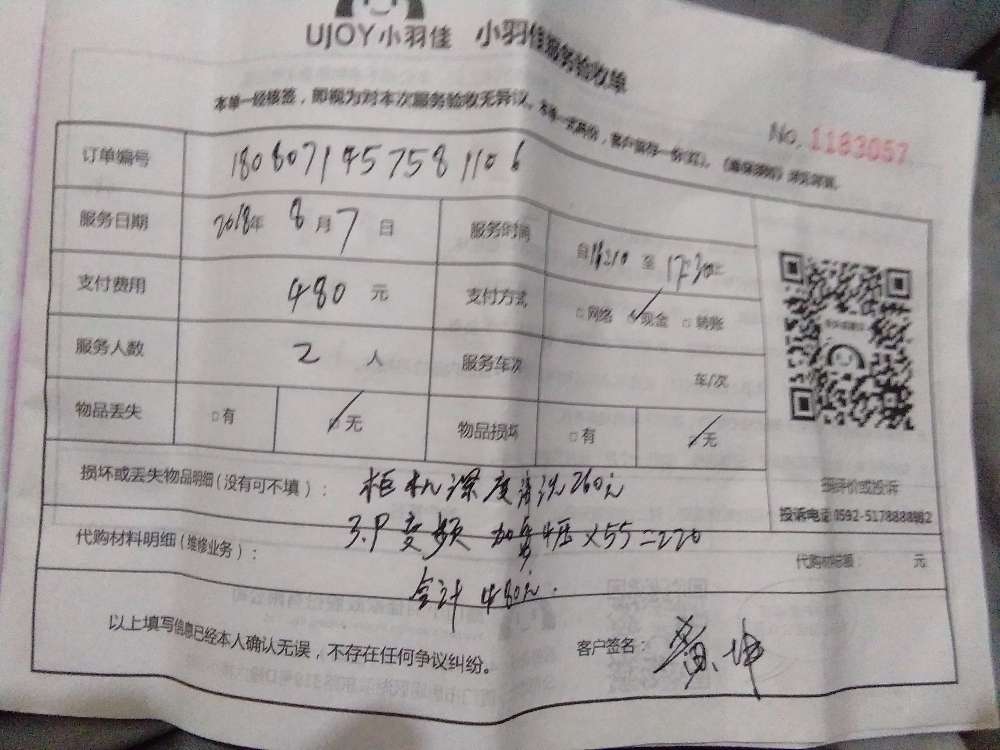 UJOY小羽佳 小羽佳服务验收单
本单一经核签，即视为对本次服务验收无异议。本单一式两份，客户留存一份(红)。
No. 1183057
订单编号 1808071457581106
服务日期 2018年 8 月 7 日 服务时间 自16:10 至 17:30止
支付费用 480 元 支付方式 □网络 ☑现金 □转账
服务人数 2 人 服务车次 车/次
物品丢失 □有 ☑无 物品损坏 □有 ☑无
损坏或丢失物品明细(没有可不填)： 柜机深度清洗260元
3.P变频 加氟4压×55=220
代购材料明细(维修业务)：
合计480元.
评价或投诉
投诉电话:0592-5178888转2
代购材料总额： 元
以上填写信息已经本人确认无误，不存在任何争议纠纷。
客户签名：黄坤